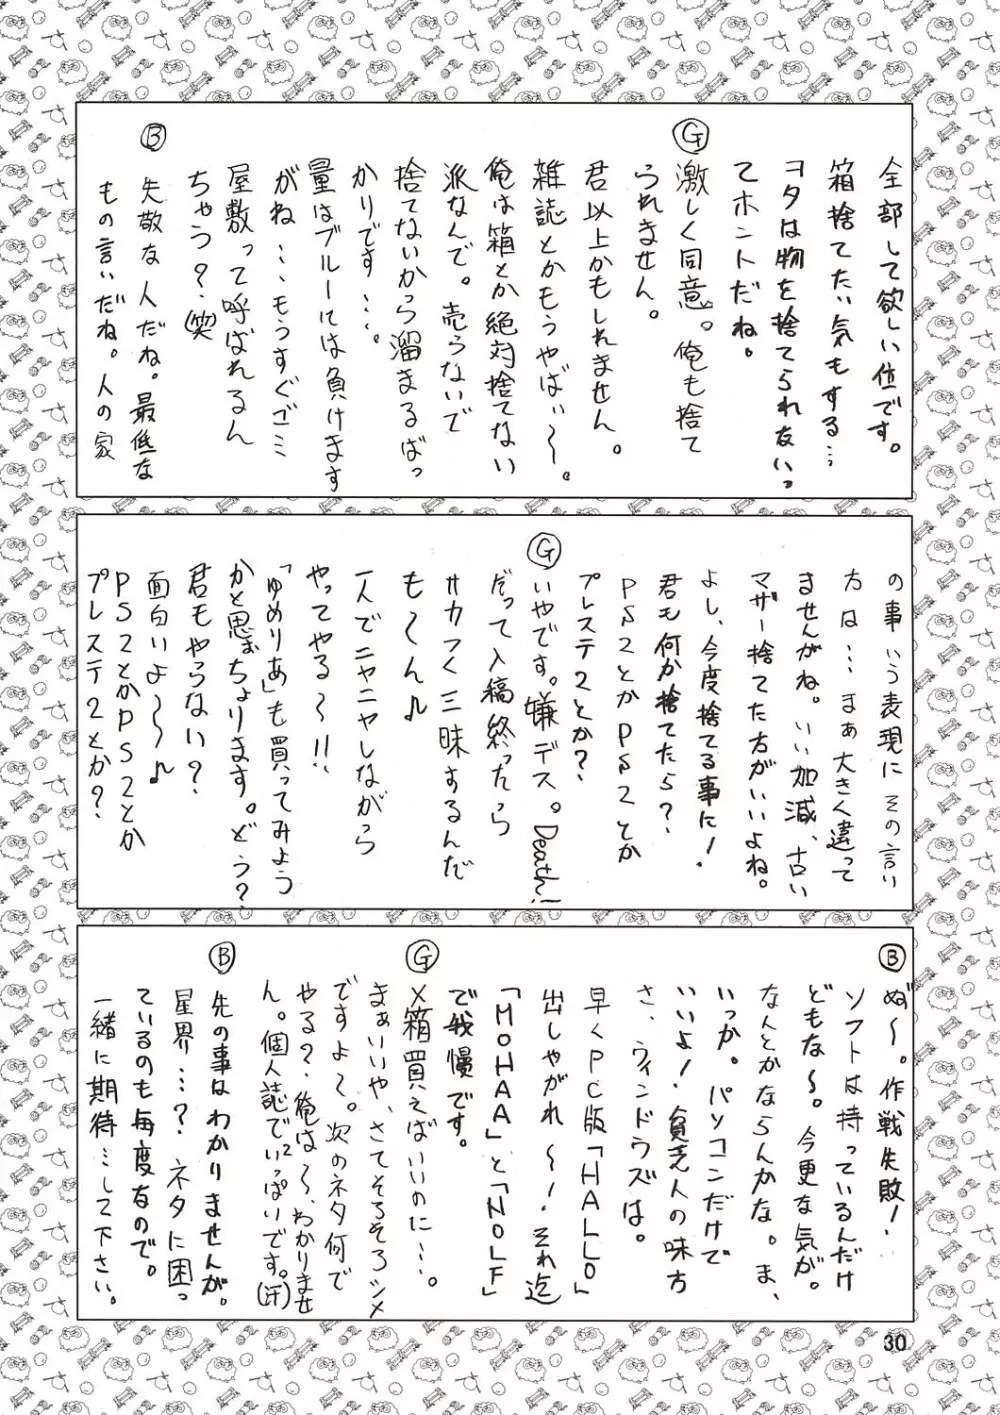 全部して欲しい位です。
箱捨てたい気もする…
ヲタは物を捨てられないっ
てホントだね。
Ⓖ激しく同意。俺も捨て
られません。
君以上かもしれません。
雑誌とかもうやばぃ～。
俺は箱とか絶対捨てない
派なんで。売らないで
捨てないから溜まるばっ
かりです…。
量はブルーには負けます
がね…もうすぐゴミ
屋敷って呼ばれるん
ちゃう？(笑)
Ⓑ失敬な人だね。最低な
もの言いだね。人の家
の事いう表現にその言い
方は…まぁ大きく違って
ませんがね。いい加減、古い
マザー捨てた方がいいよね。
よし、今度捨てる事に！
君も何か捨てたら？
PS2とかPS2とか
プレステ2とか？
Ⓖいやです。嫌デス。Death!
だって入稿終ったら
サカつく三昧するんだ
も～ん♪
一人でニヤニヤしながら
やってやる～!!
「ゆめりあ」も買ってみよう
かと思ぉちょります。どう？
君もやらない？
面白いよ～～♪
PS2とかPS2とか
プレステ2とか？
Ⓑぬ～。作戦失敗！
ソフトは持っているんだけ
どもな～。今更な気が。
なんとかならんかな。ま、
いっか。パソコンだけで
いいよ！貧乏人の味方
さ、ウィンドウズは。
早くPC版「HALLO」
出しやがれ～！それ迄
「MOHAA」と「NOLF」
で我慢です。
Ⓖ×箱買えばいいのに…。
まぁいいや、さてそろそろシメ
ですよ～。次のネタ何で
やる？俺は～、わかりませ
ん。個人誌でいっぱいです。(汗)
Ⓑ先の事はわかりませんが。
星界…？ネタに困っ
ているのも毎度なので。
一緒に期待…して下さい。
30